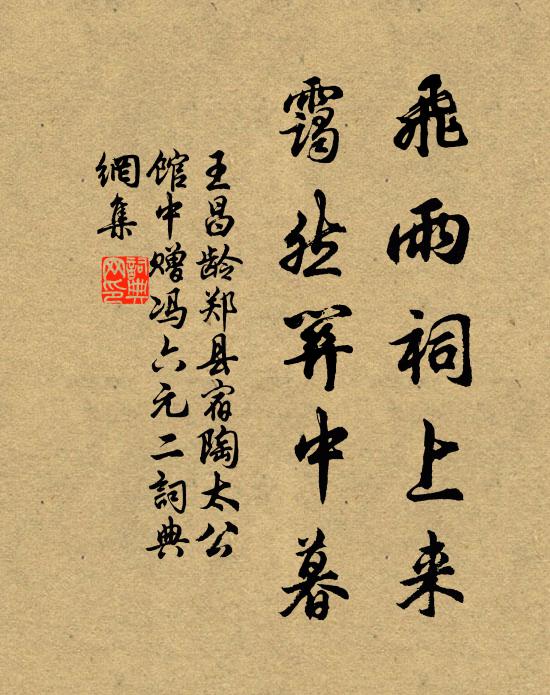 飛雨祠上来
靄然关中暮
王昌龄郑县宿陶太公
馆中赠冯六元二詞典
網集
詞典
网印